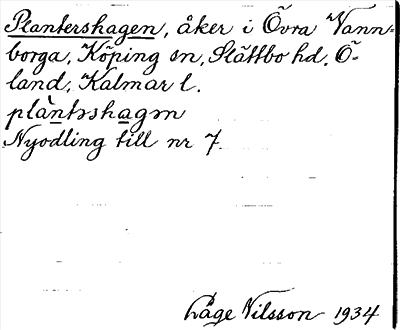 Plantershagen, åker i Övra Vann-
borga, Köping sn, Slättbo hd. Ö-
land, Kalmar l.
plàntəshagən
Nyodling till nr 7
Låge Nilsson 1934